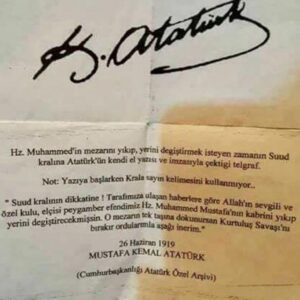 K. Atatürk
Hz. Muhammed'in mezarını yıkıp, yerini degiştirmek isteyen zamanın Suud
kralına Atatürk'ün kendi el yazısı ve imzanıyla çektigi telgraf.
Not: Yazıya başlarken Krala sayın kelimesini kullanmıyor..
" Suud kralının dikkatine ! Tarafımıza ulaşan haberlere göre Allah'ın sevgili ve
özel kulu, elçisi peygamber efendimiz Hz. Muhammed Mustafa'nın kabrini yıkıp
yerini degiştirecekmişsin. O mezarın tek taşına dokunursan Kurtuluş Savaşı'nı
bırakır ordularımla aşağı inerim."
26 Haziran 1919
MUSTAFA KEMAL ATATÜRK
(Cumhurbaşkanlığı Atatürk Özel Arşivi)